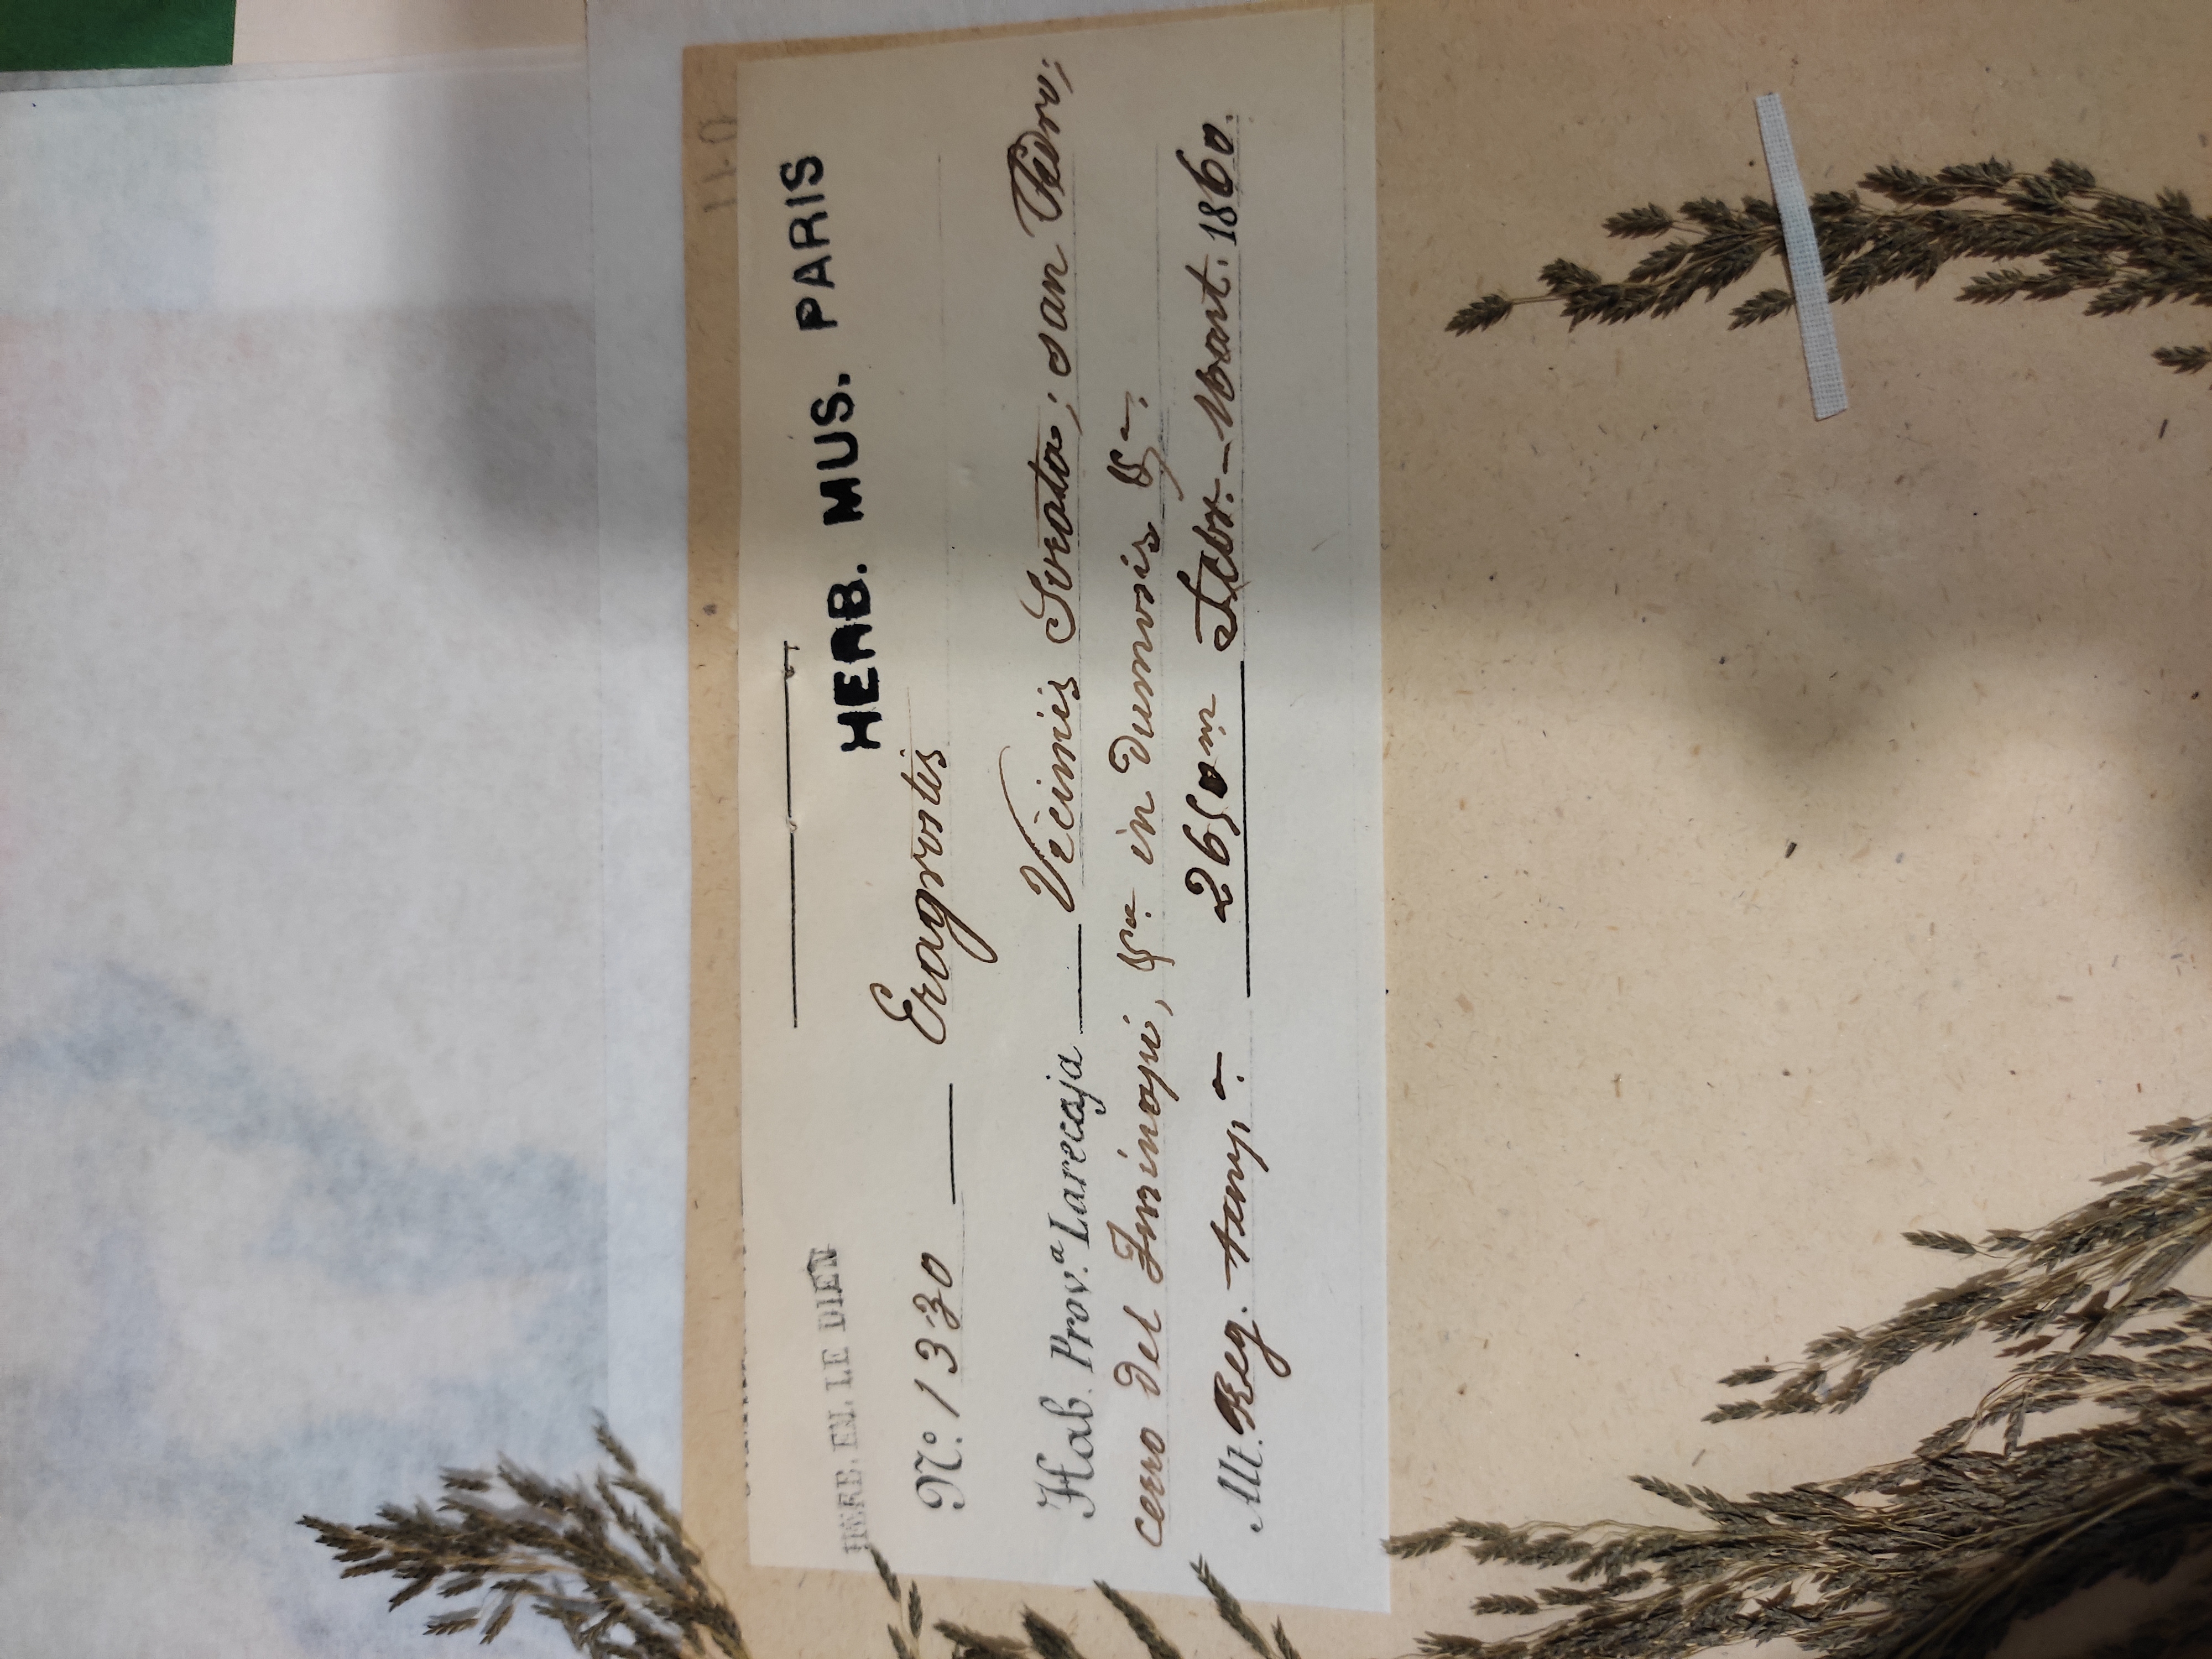 HERB. MUS. PARIS
HERB. EM. LE DIEN
N.º 1330 — Eragrostis
Hab. Prov.ª Larecaja — Viciniis Sorata; san Pedro;
cerro del Iminapi, &ª. in dumosis &ª.
Alt. Reg. temp.ª — 2650 m Febr. – Mart. 1860.